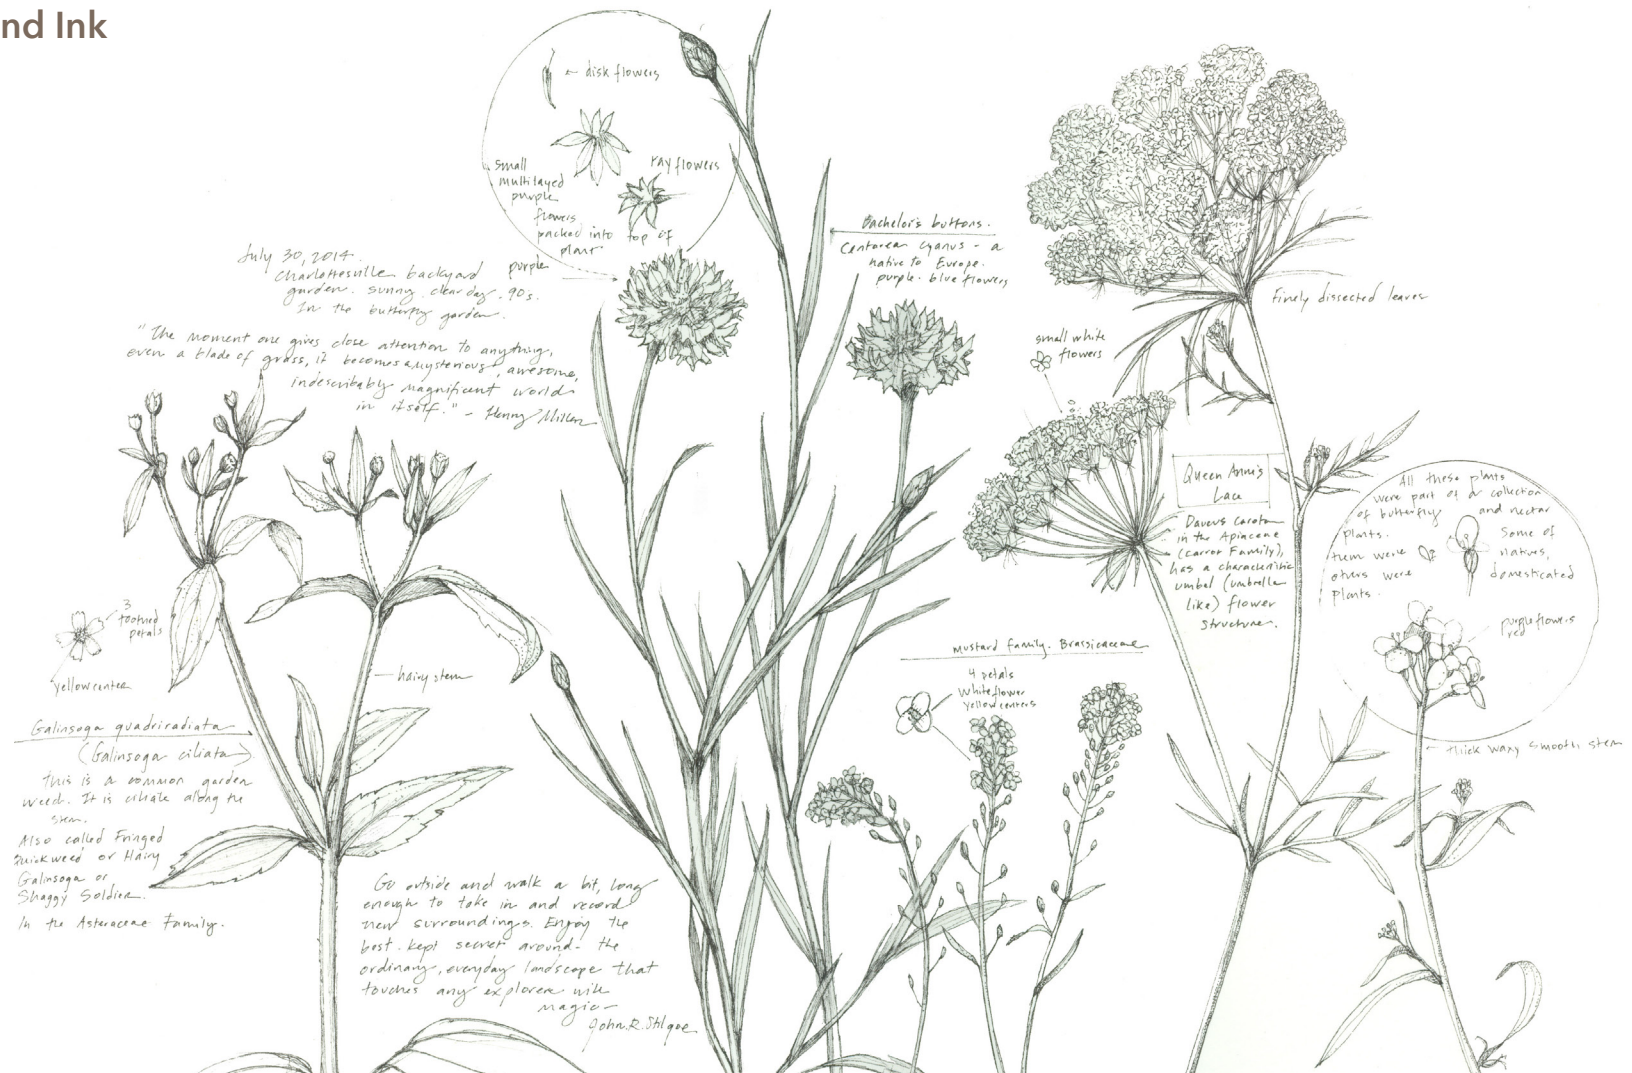 nd Ink
disk flowers
small
multilayed
purple
flowers
packed into top of
plant
ray flowers
July 30, 2014.
Charlottesville backyard
garden. sunny. clear day. 90s.
In the butterfly garden.
purple
"The moment one gives close attention to anything,
even a blade of grass, it becomes a mysterious, awesome,
indescribably magnificent world
in itself." - Henry Miller
Bachelor's buttons.
Centarean cyanus - a
native to Europe.
purple-blue flowers
Finely dissected leaves
small white
flowers
Queen Anne's
Lace
Daucus carota
in the Apiaceae
(carrot Family),
has a characteristic
umbel (umbrella
like) flower
structure.
All these plants
were part of a collection
of butterfly and nectar
plants. Some of
them were natives,
others were domesticated
plants.
purple flowers
red
thick waxy smooth stem
mustard family. Brassicaceae
4 petals
White flower
yellow centers
3
toothed
petals
yellow center
hairy stem
Galinsoga quadriradiata
(Galinsoga ciliata)
This is a common garden
weed. It is ciliate along the
stem.
Also called Fringed
Quickweed or Hairy
Galinsoga or
Shaggy Soldier.
In the Asteraceae Family.
Go outside and walk a bit, long
enough to take in and record
new surroundings. Enjoy the
best-kept secret around- the
ordinary, everyday landscape that
touches any explorer with
magic-
John.R.Stilgoe